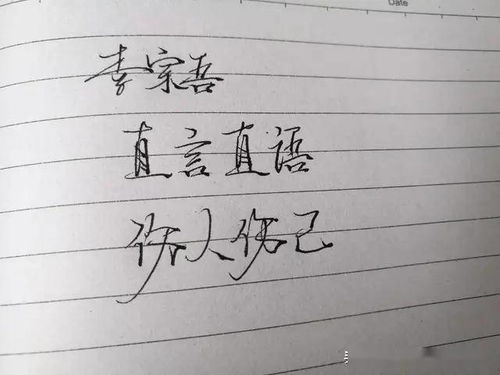 Date
李宗吾
直言直语
伤人伤己